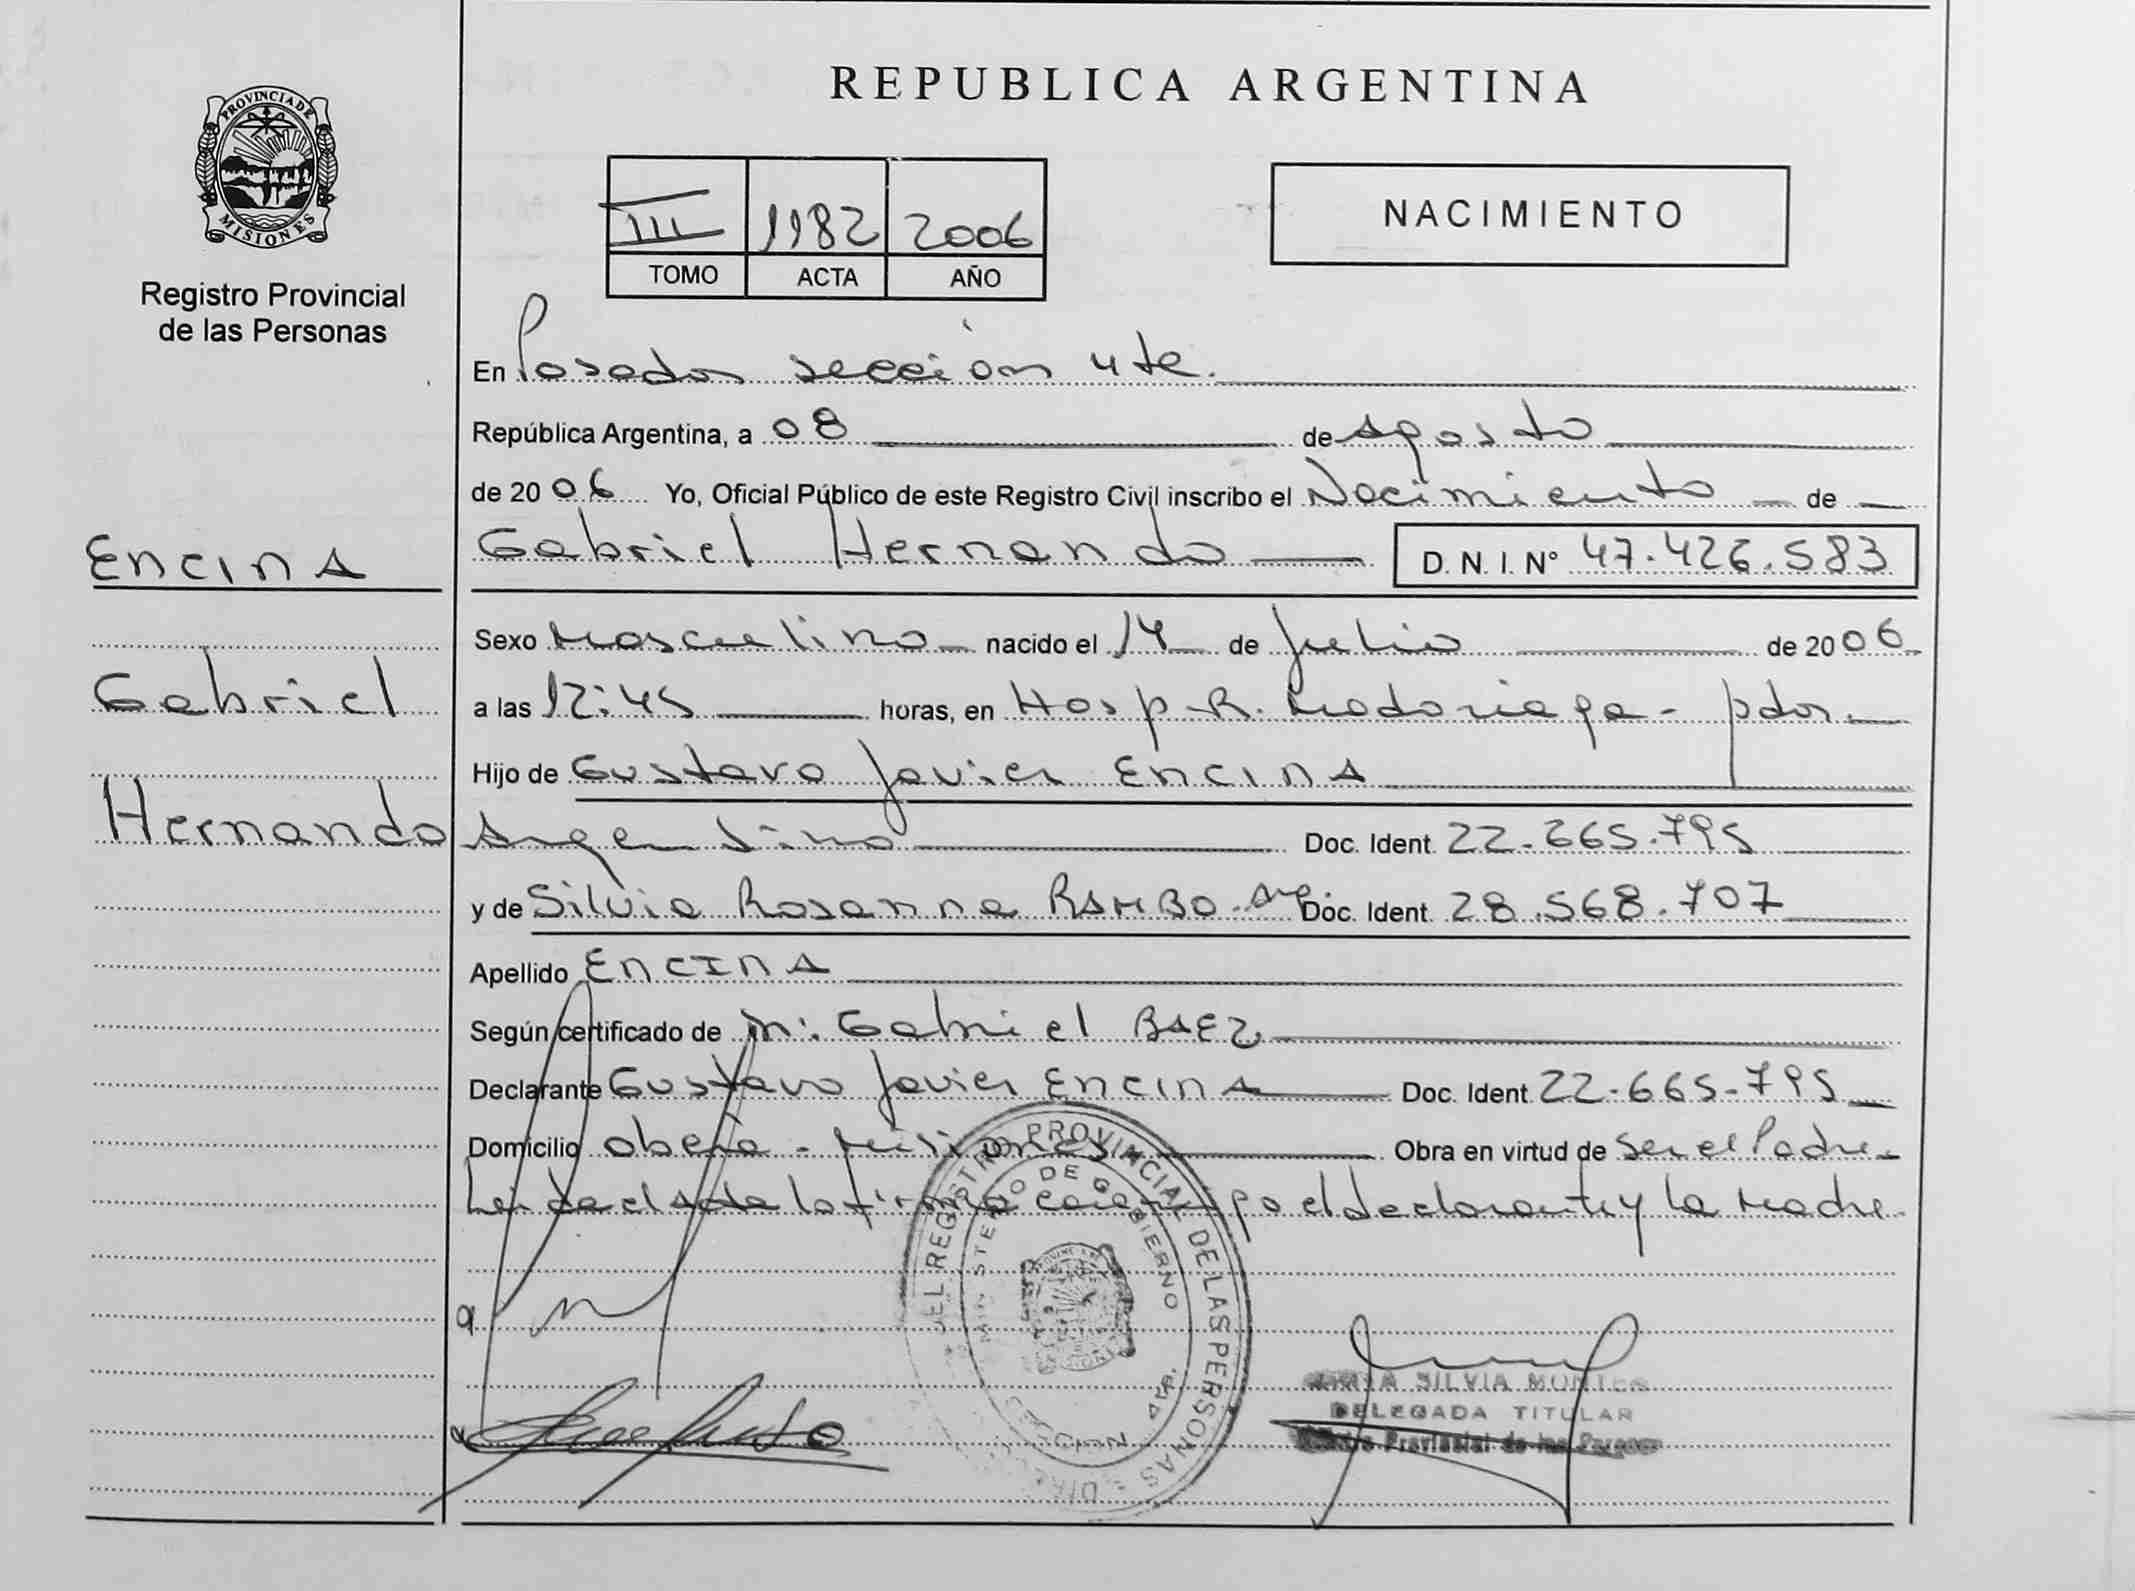 PROVINCIA DE
MISIONES
Registro Provincial
de las Personas
REPUBLICA ARGENTINA
III 1182 2006
TOMO ACTA AÑO
NACIMIENTO
En Posadas sección 4te.
República Argentina, a 08 de Agosto
de 2006 Yo, Oficial Público de este Registro Civil inscribo el Nacimiento de
Gabriel Hernando D. N. I. Nº 47.426.583
Encina
Gabriel
Hernando
Sexo Masculino nacido el 14 de Julio de 2006
a las 12:45 horas, en Hosp. R. Madariaga - pdas.
Hijo de Gustavo Javier Encina
Argentino Doc. Ident. 22.665.795
y de Silvia Rosanna RAMBO. Arg Doc. Ident. 28.568.707
Apellido ENCINA
Según certificado de Gabriel BAEZ
Declarante Gustavo Javier Encina Doc. Ident. 22.665.795
Domicilio Obera - Misiones Obra en virtud de Ser el Padre
Leída el Acta la firma conmigo el declarante y la Madre
DEL REGISTRO PROVINCIAL DE LAS PERSONAS
MINISTERIO DE GOBIERNO
SECCION 4ta.
SILVIA
DELEGADA TITULAR
Provincial de las Personas